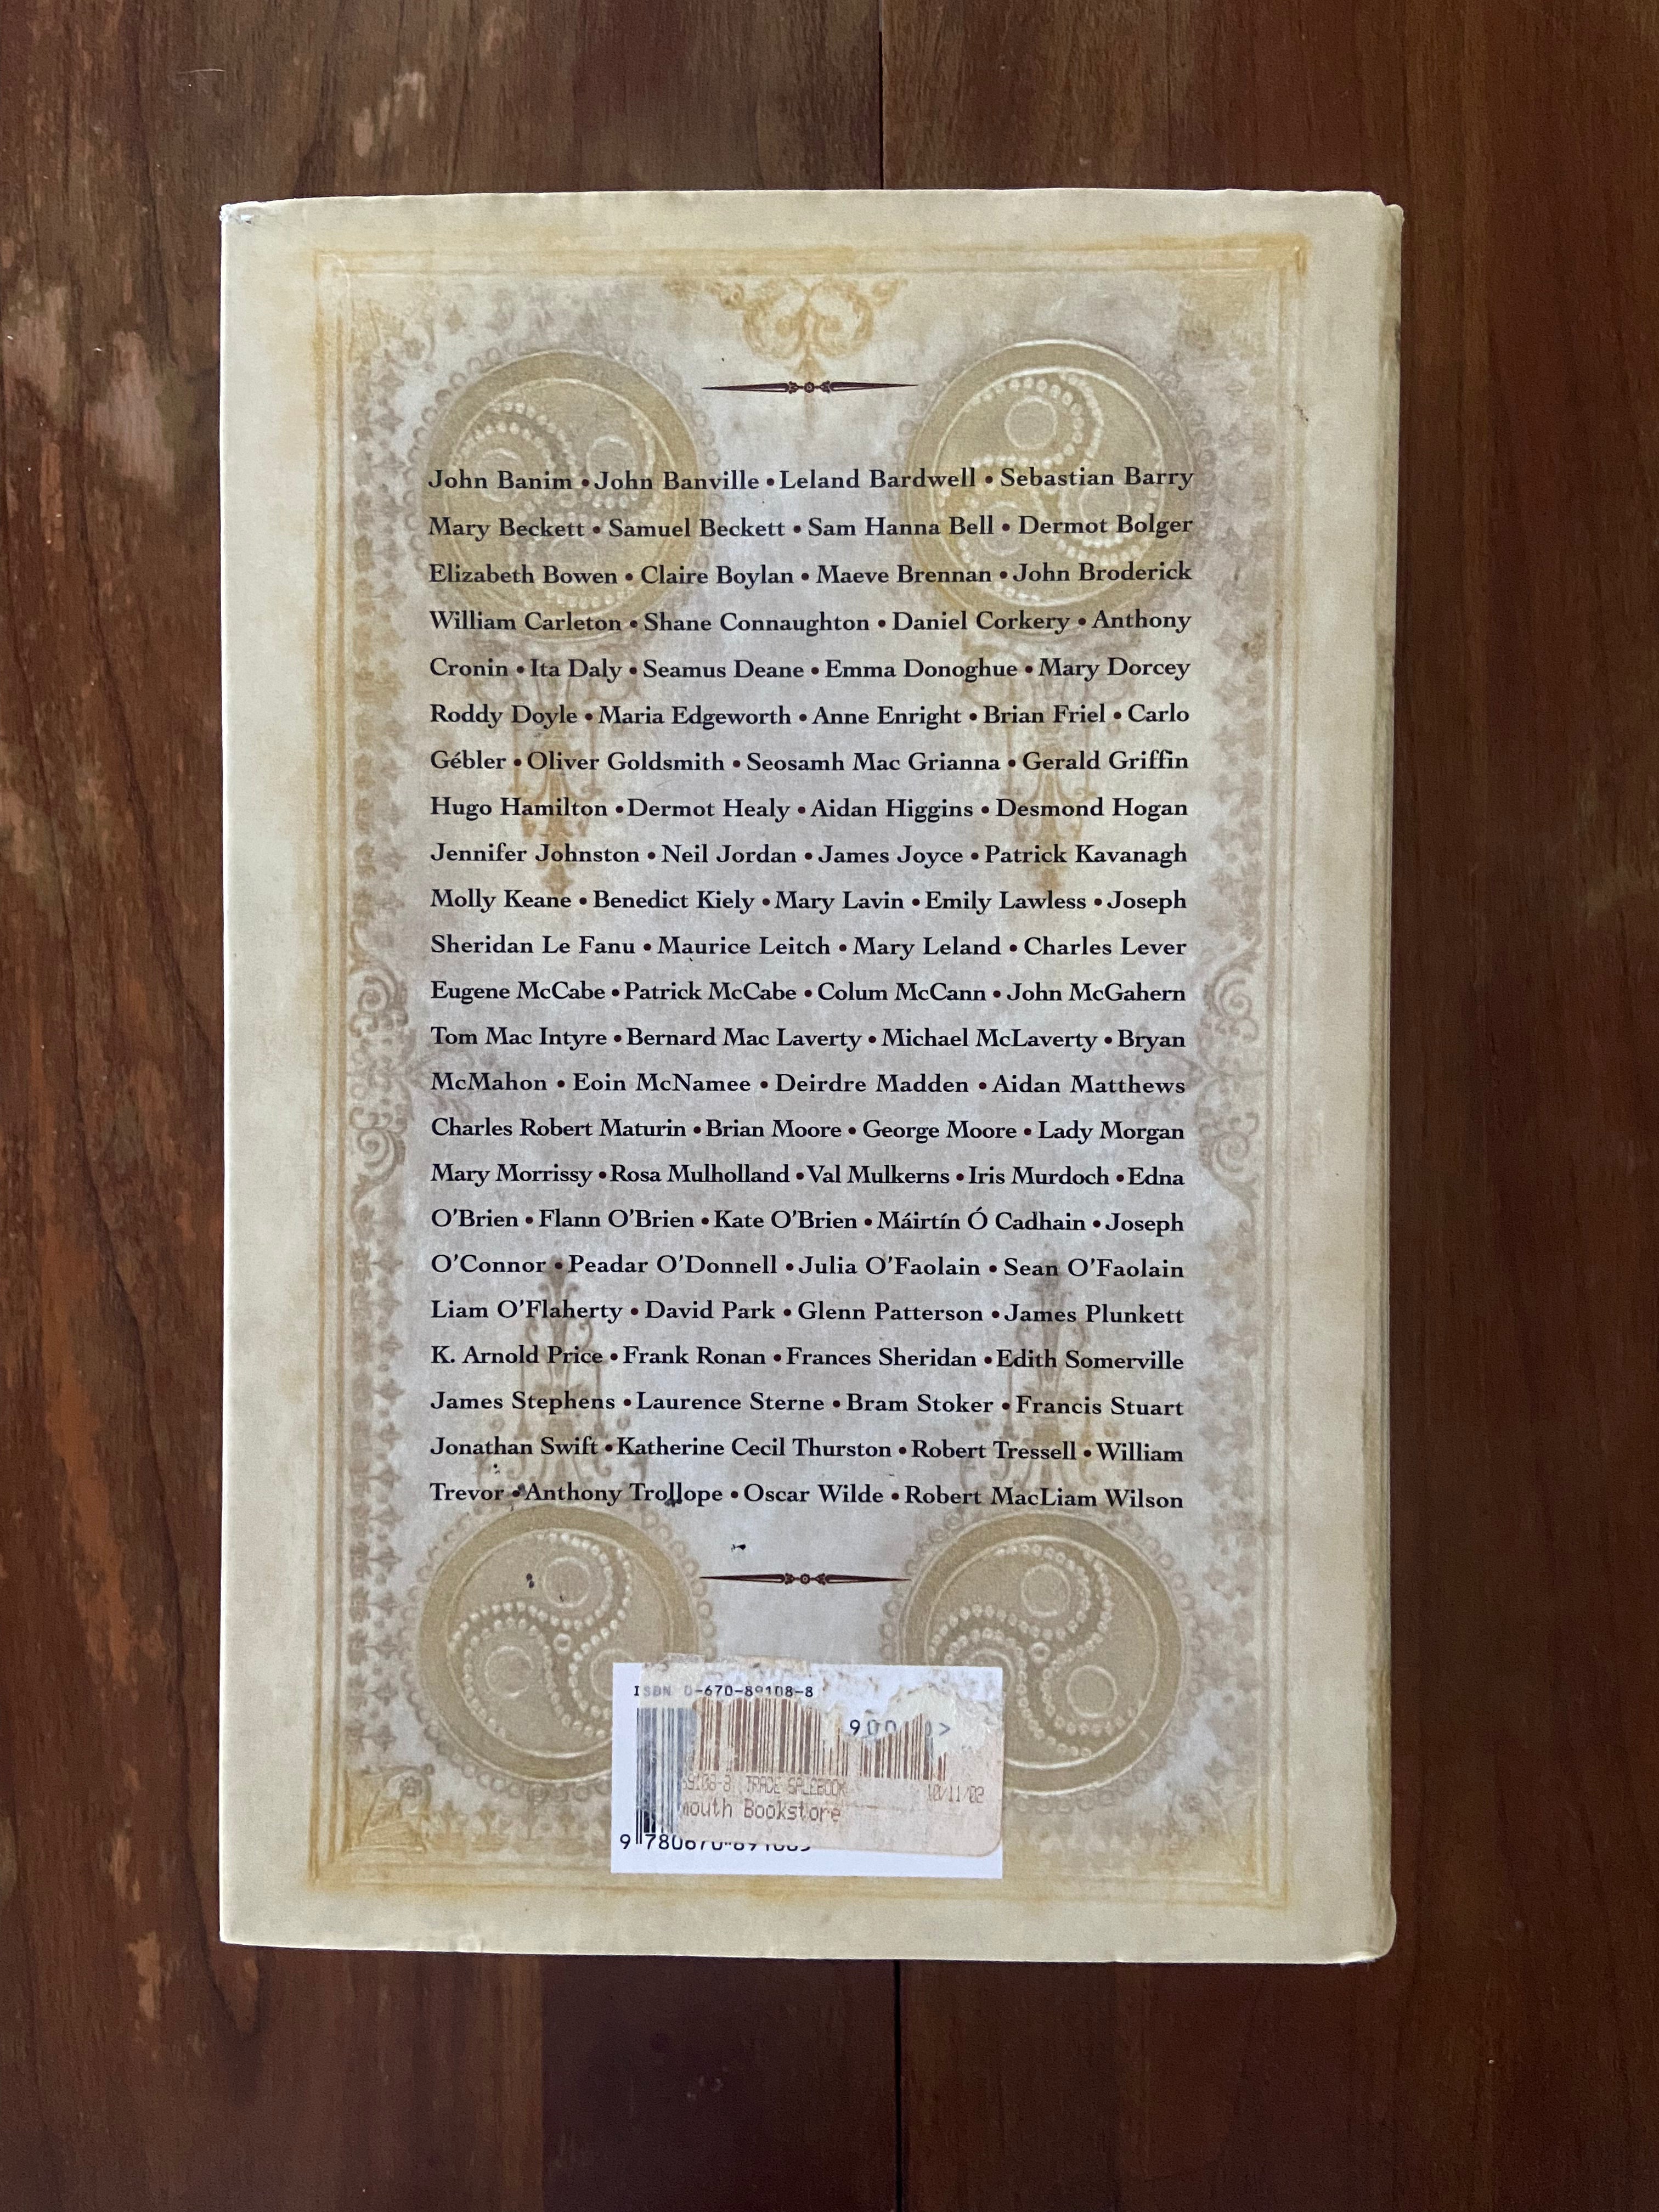 John Banim • John Banville • Leland Bardwell • Sebastian Barry
Mary Beckett • Samuel Beckett • Sam Hanna Bell • Dermot Bolger
Elizabeth Bowen • Claire Boylan • Maeve Brennan • John Broderick
William Carleton • Shane Connaughton • Daniel Corkery • Anthony
Cronin • Ita Daly • Seamus Deane • Emma Donoghue • Mary Dorcey
Roddy Doyle • Maria Edgeworth • Anne Enright • Brian Friel • Carlo
Gébler • Oliver Goldsmith • Seosamh Mac Grianna • Gerald Griffin
Hugo Hamilton • Dermot Healy • Aidan Higgins • Desmond Hogan
Jennifer Johnston • Neil Jordan • James Joyce • Patrick Kavanagh
Molly Keane • Benedict Kiely • Mary Lavin • Emily Lawless • Joseph
Sheridan Le Fanu • Maurice Leitch • Mary Leland • Charles Lever
Eugene McCabe • Patrick McCabe • Colum McCann • John McGahern
Tom Mac Intyre • Bernard Mac Laverty • Michael McLaverty • Bryan
McMahon • Eoin McNamee • Deirdre Madden • Aidan Matthews
Charles Robert Maturin • Brian Moore • George Moore • Lady Morgan
Mary Morrissy • Rosa Mulholland • Val Mulkerns • Iris Murdoch • Edna
O'Brien • Flann O'Brien • Kate O'Brien • Máirtín Ó Cadhain • Joseph
O'Connor • Peadar O'Donnell • Julia O'Faolain • Sean O'Faolain
Liam O'Flaherty • David Park • Glenn Patterson • James Plunkett
K. Arnold Price • Frank Ronan • Frances Sheridan • Edith Somerville
James Stephens • Laurence Sterne • Bram Stoker • Francis Stuart
Jonathan Swift • Katherine Cecil Thurston • Robert Tressell • William
Trevor • Anthony Trollope • Oscar Wilde • Robert MacLiam Wilson
ISBN 0-670-89108-8
TRADE SALEBOOK 10/11/02
mouth Bookstore